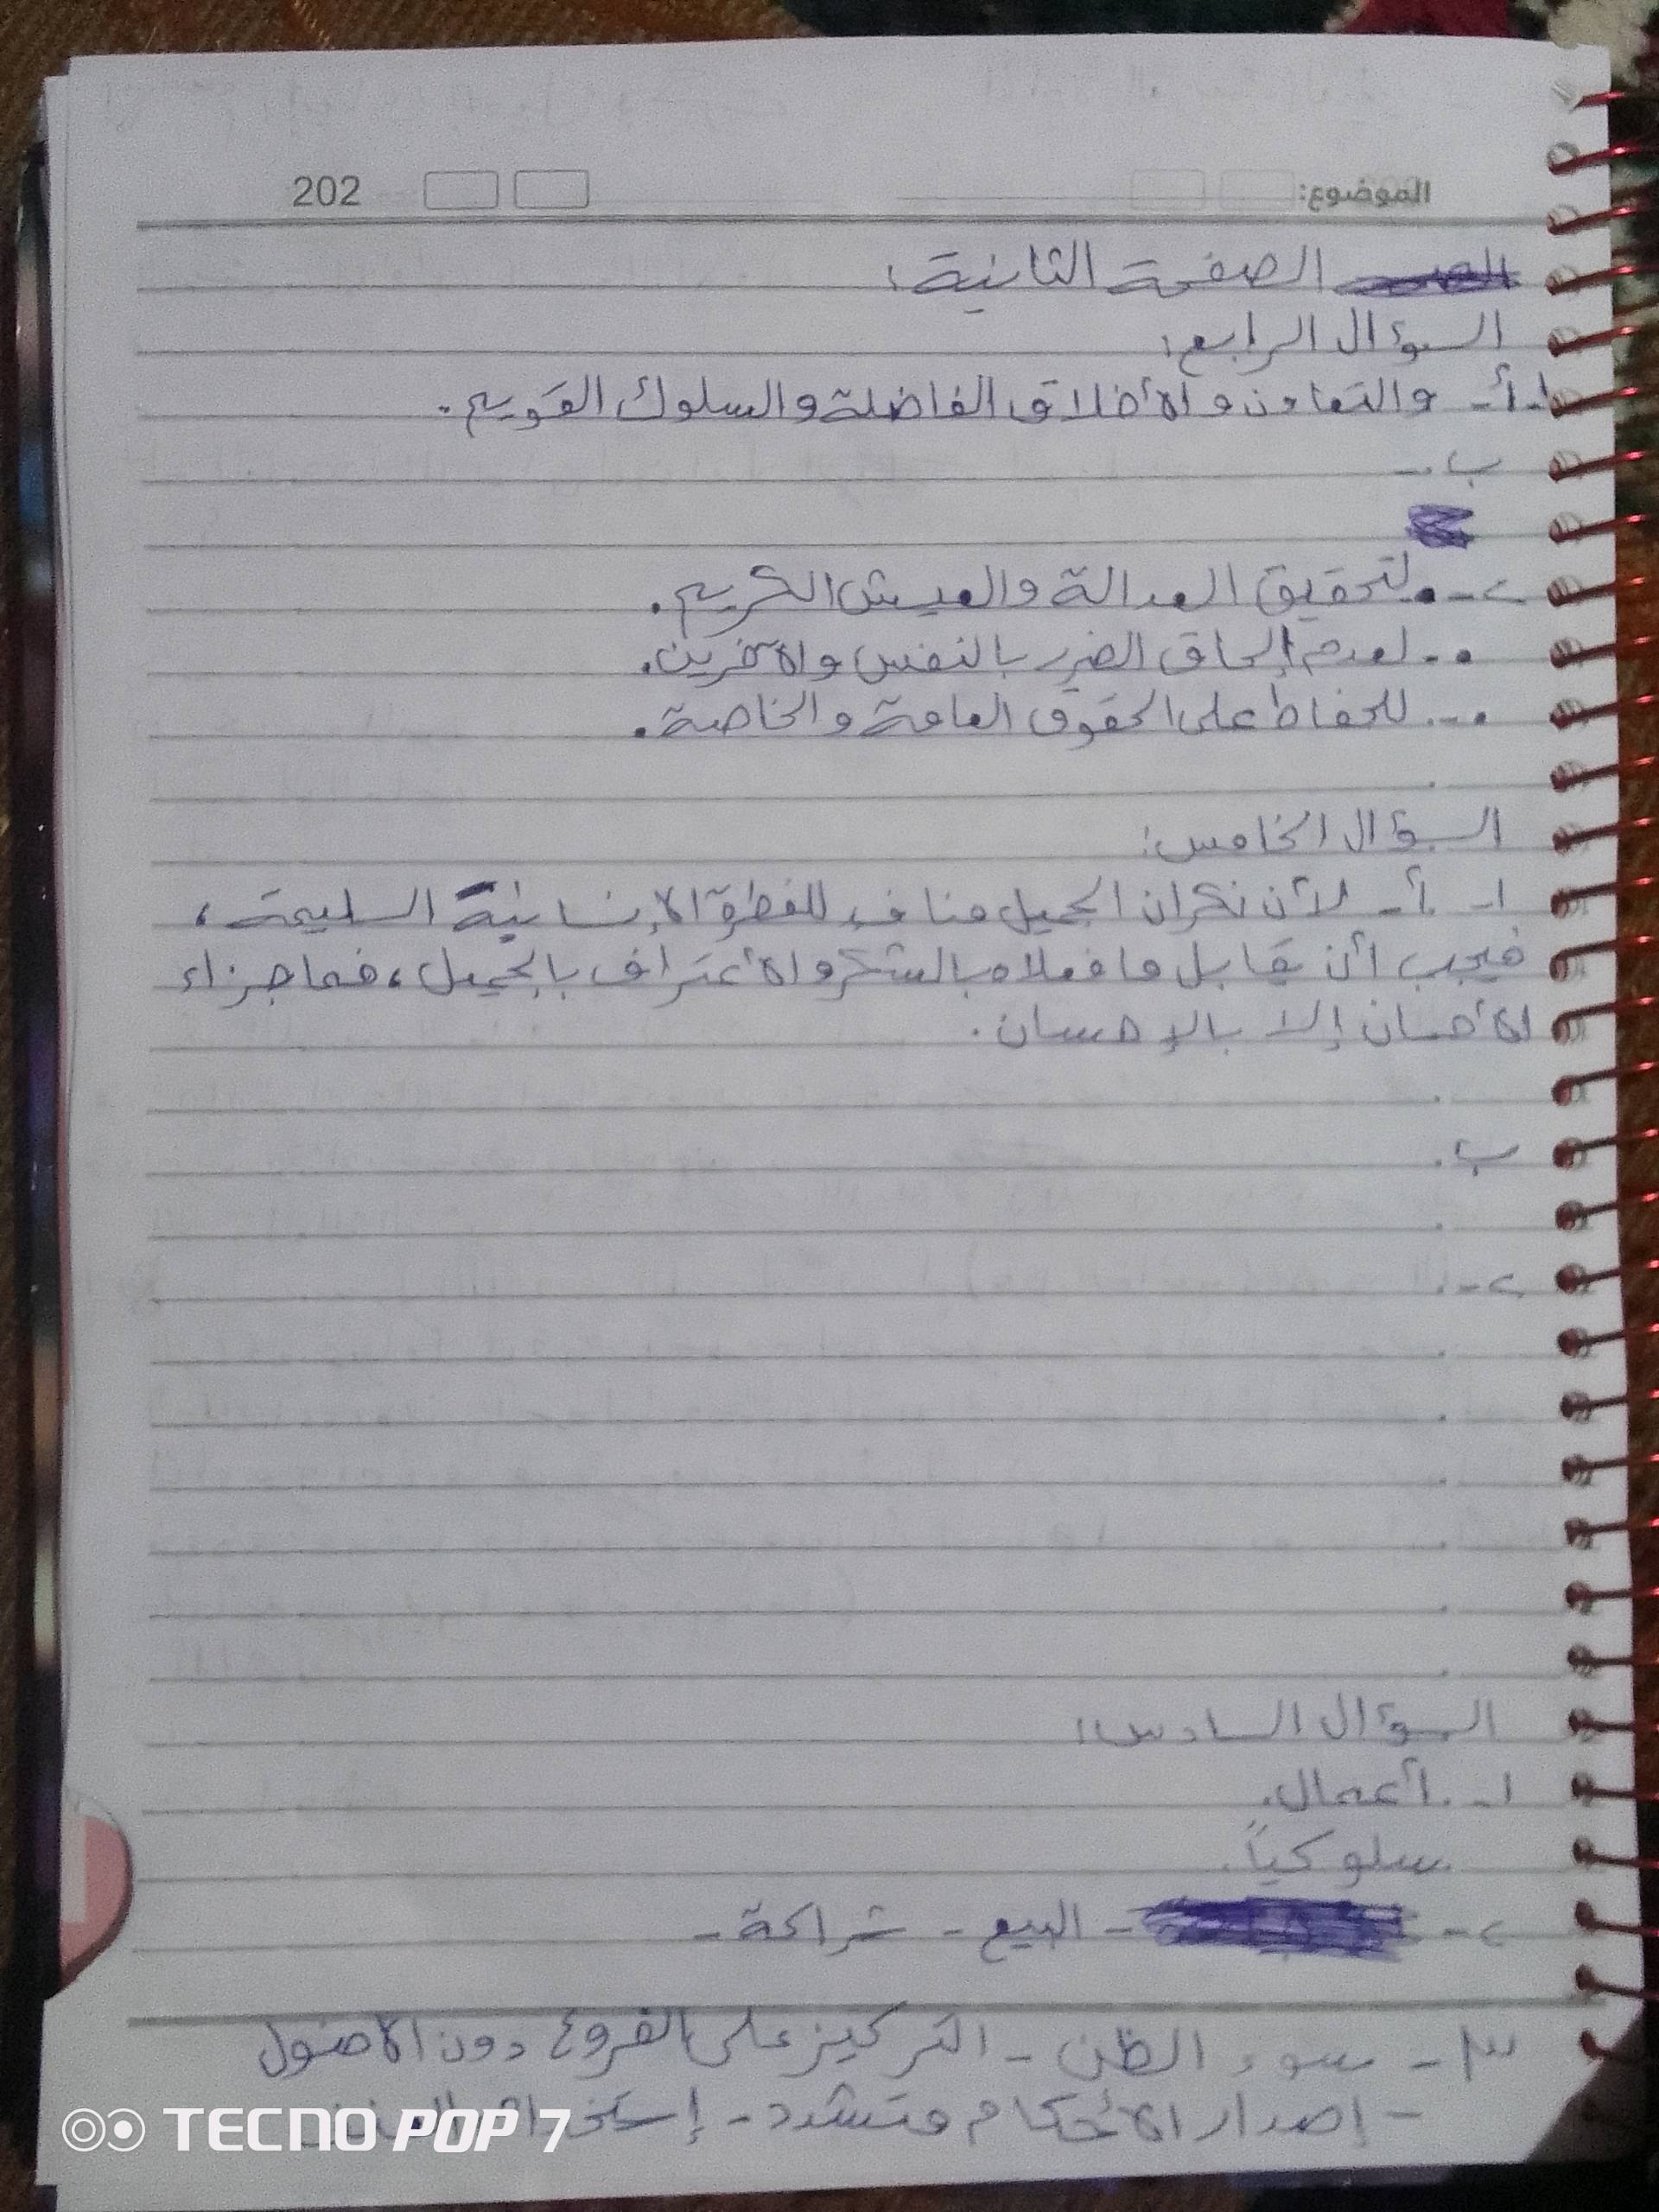 الموضوع:
202
الصفحة الثانية:
السؤال الرابع:
١- أ- والتعاون والأخلاق الفاضلة والسلوك القويم.
ب.-
٢- • لتحقيق العدالة والعيش الكريم.
• - لعدم إلحاق الضرر بالنفس والآخرين.
• - للحفاظ على الحقوق العامة والخاصة.
السؤال الخامس:
١- أ- لأن نكران الجميل مناف للفطرة الإنسانية السليمة،
فيجب أن يقابل ما فعلاه بالشكر والأعتراف بالجميل، فما جزاء
الأحسان إلا بالإحسان.
ب.
٢-.
السؤال السادس:
١- أعمال.
سلوكياً.
٢- - البيع - شراكة -
٣- سوء الظن - التركيز على الفروع دون الأصول
- إصدار الأحكام متشدد - إستخدام العنف
TECNO POP 7